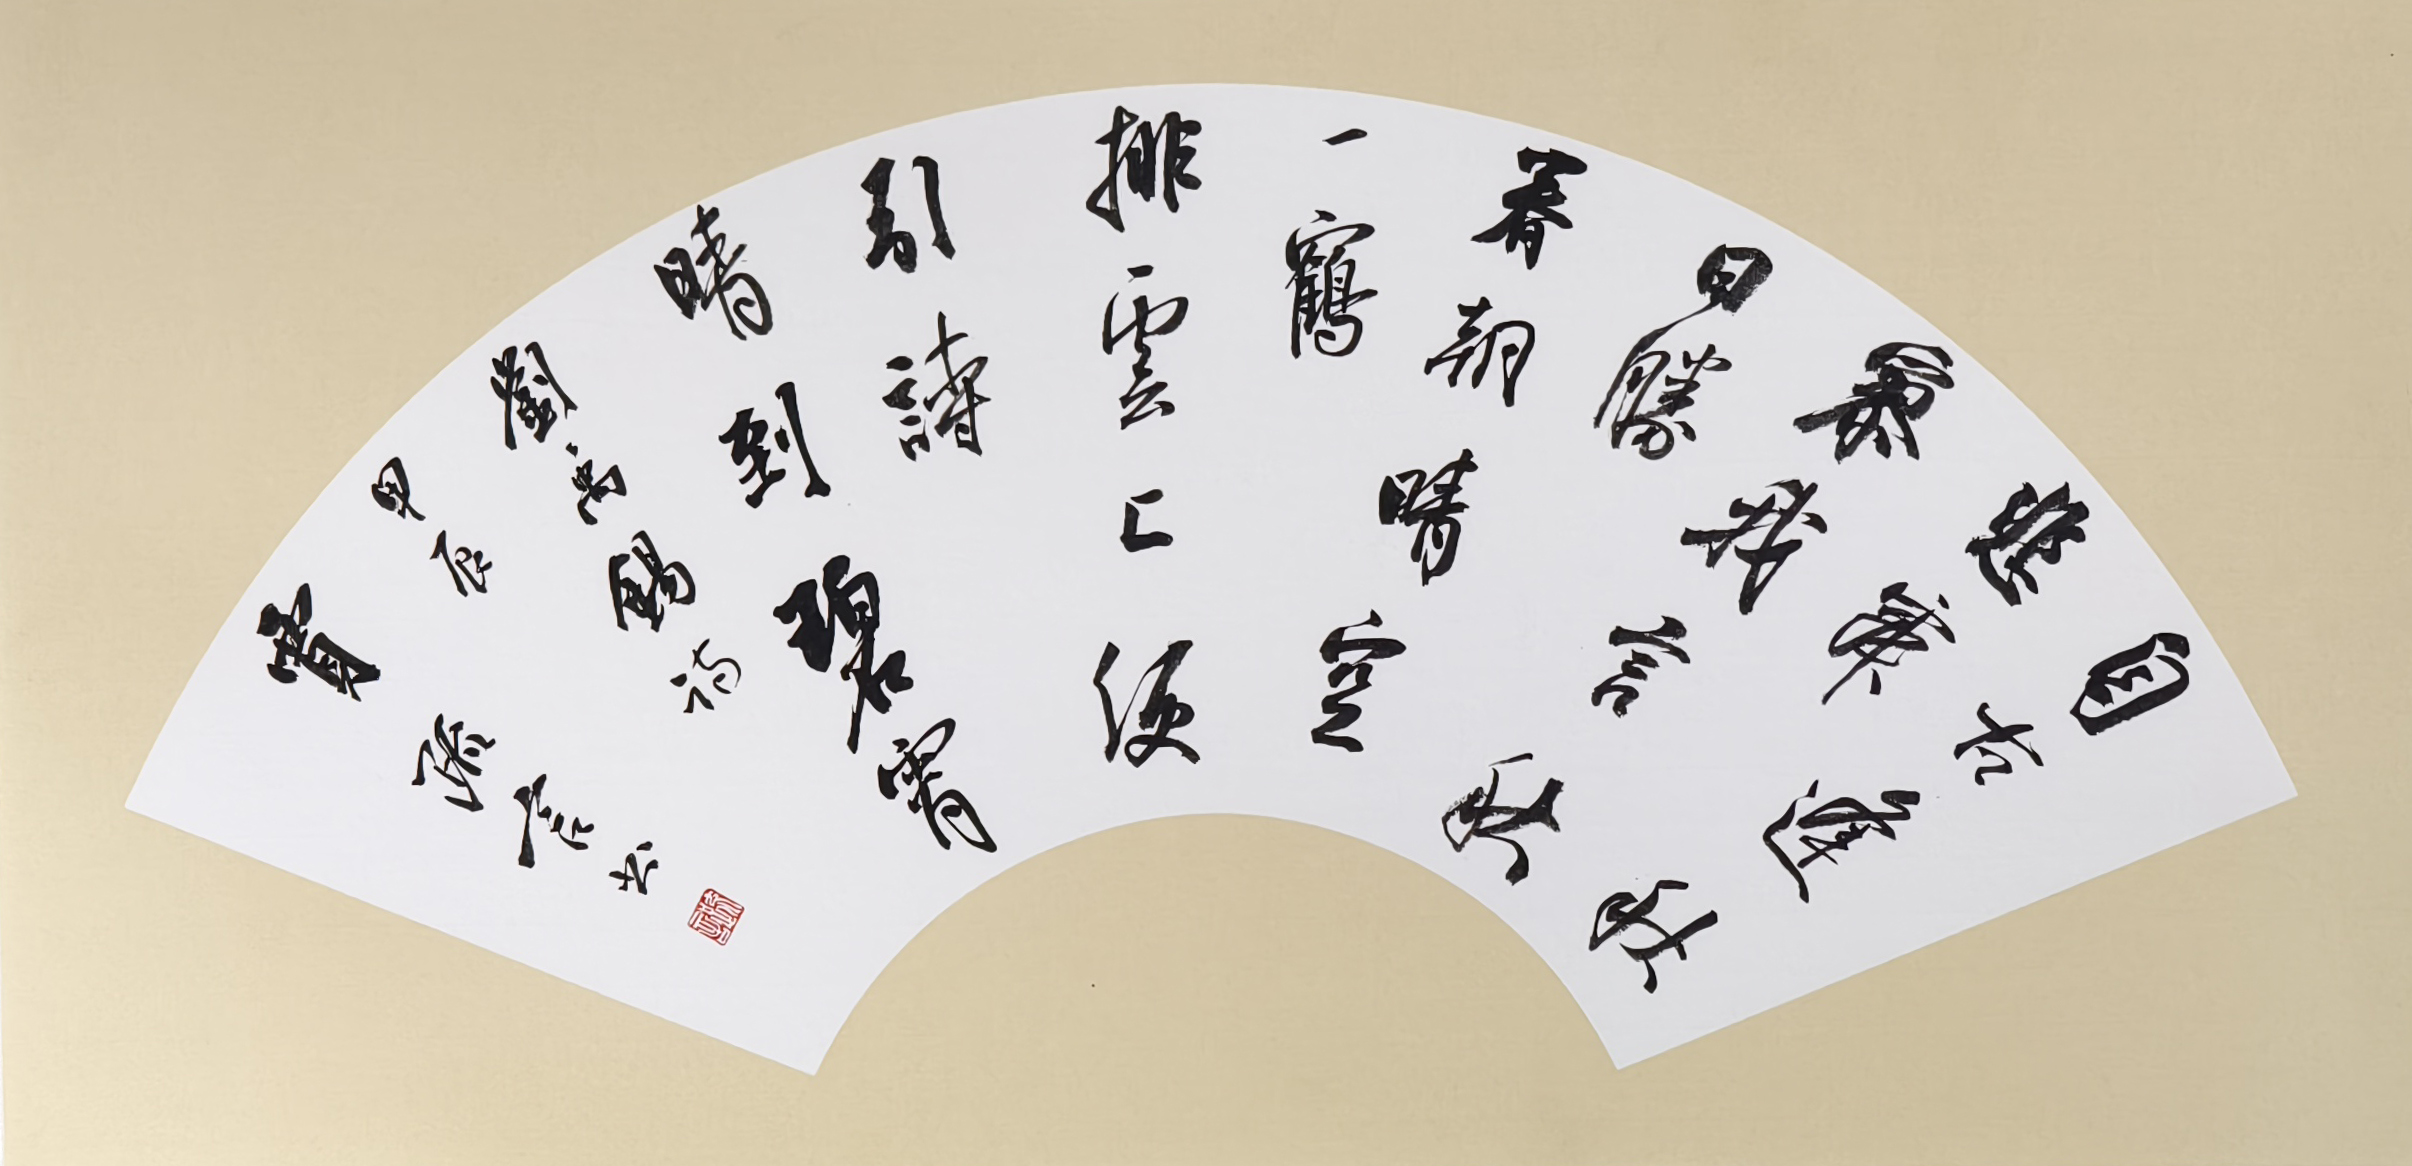 自古逢秋
悲寂
寥我言秋
日勝
春朝晴空
一鶴
排雲上便
引詩
晴到碧霄
劉禹錫詩
甲辰
书